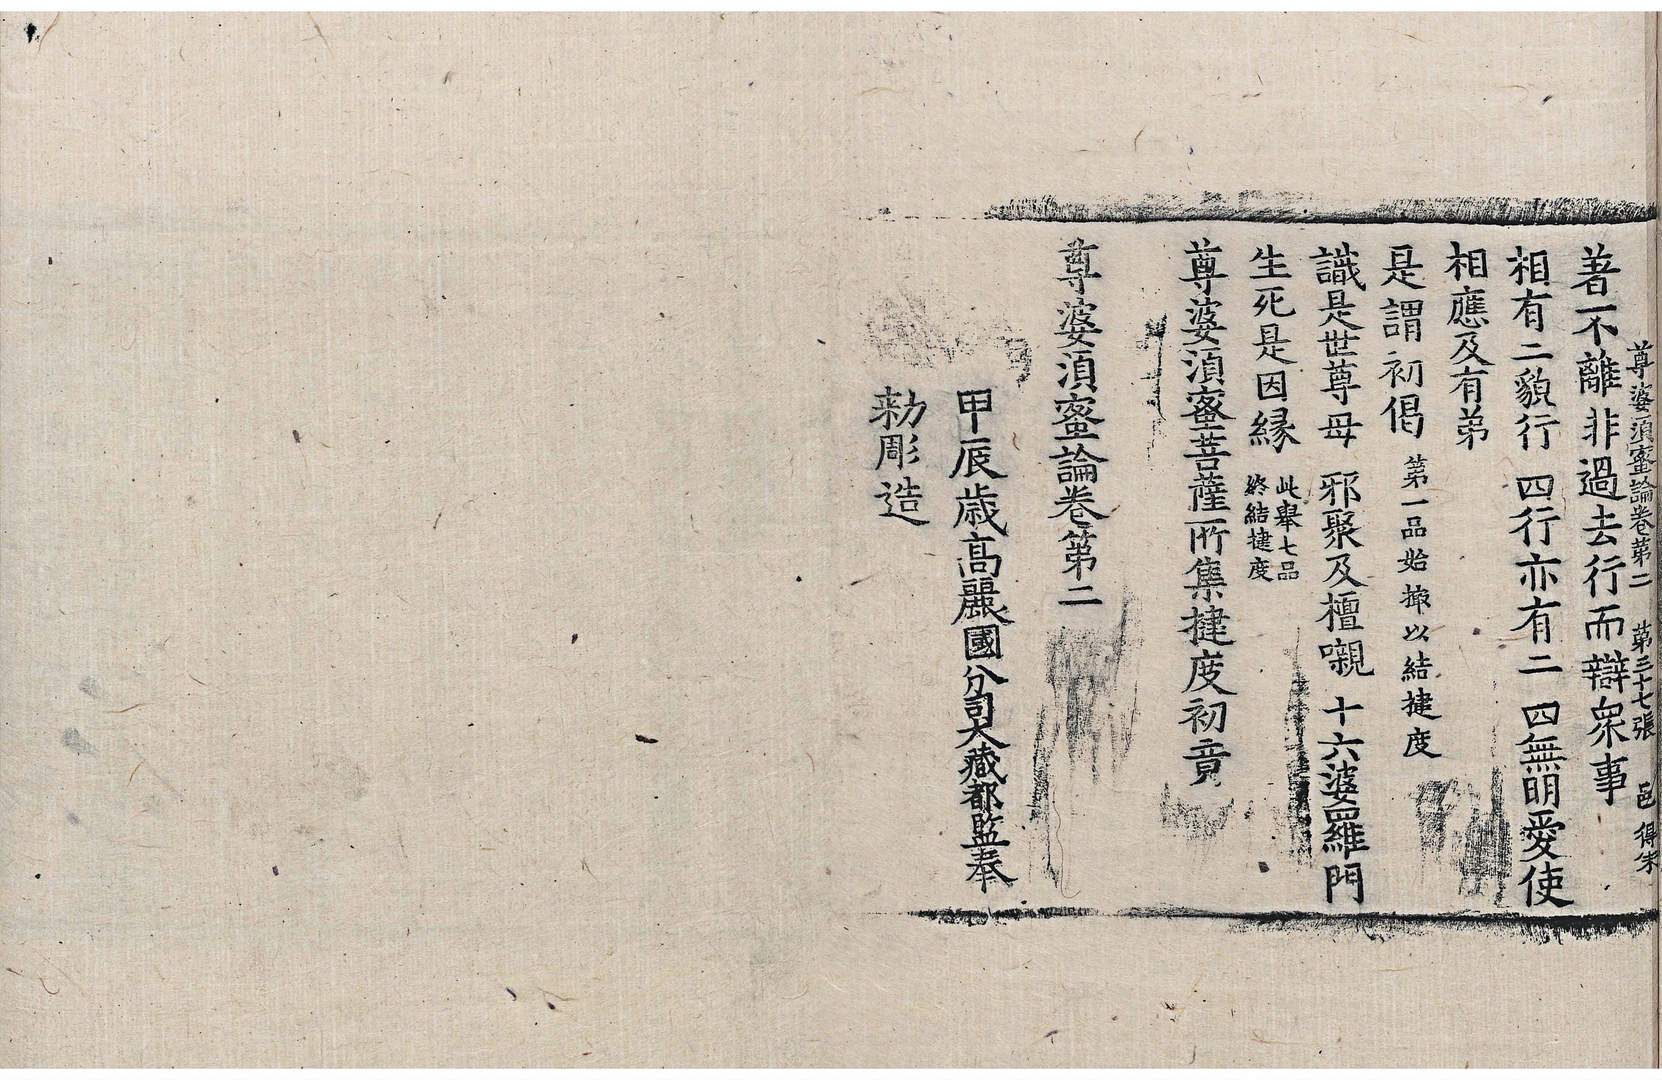 尊婆須蜜論卷第二 第三十七張 邑 得朱
著不離非過去行而辯衆事
相有二貌行 四行亦有二 四無明愛使
相應及有弟
是謂初偈 第一品始㧢以結揵度
識是世尊母 邪聚及檀嚫 十六婆羅門
生死是因緣 此舉七品
終結揵度
尊婆須蜜菩薩所集揵度初竟
尊婆須蜜論卷第二
甲辰歲高麗國分司大藏都監奉
勑彫造